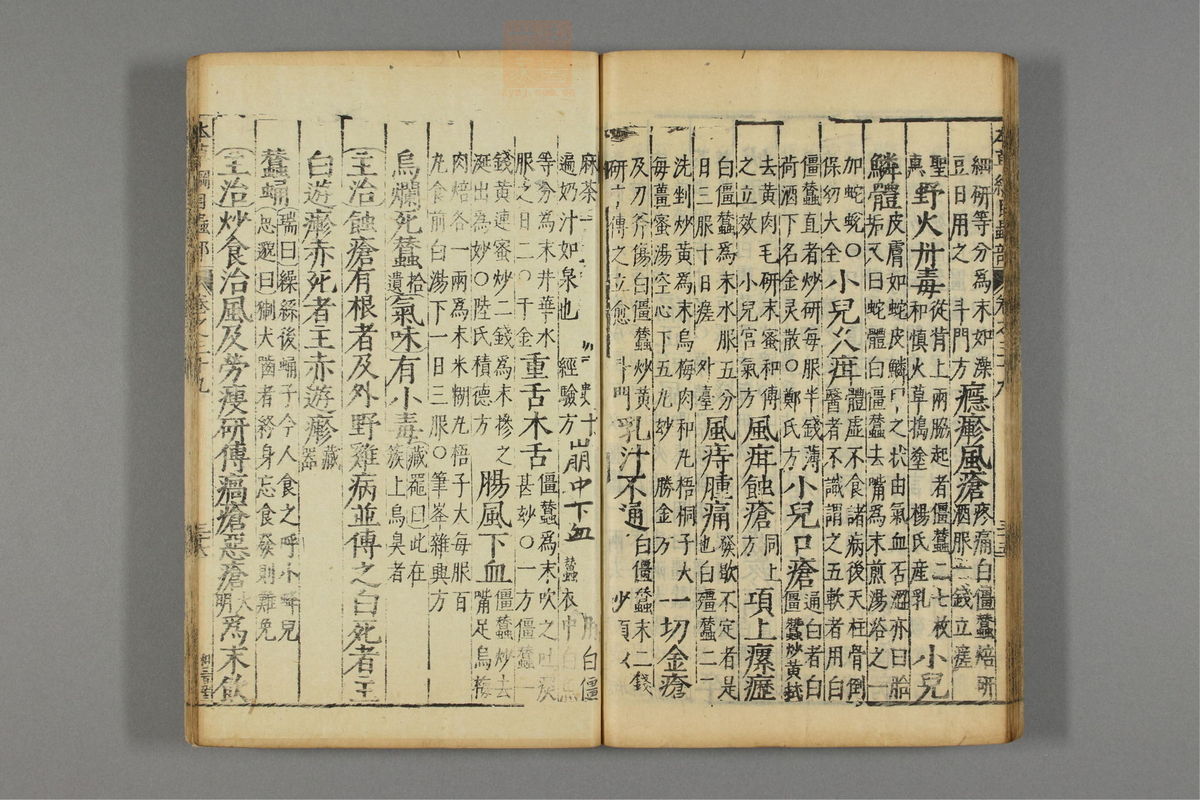 細研等分爲末如澡
豆日用之 斗門方 癮瘮風瘡疼痛白僵蠶焙研酒服一錢立瘥
聖 野火丹毒從背上兩脇起者僵蠶二七枚和慎火草搗塗 楊氏產乳 小兒
鱗體皮膚如蛇皮鱗甲之狀由氣血否澀亦曰胎垢又曰蛇體白僵蠶去嘴爲末煎湯浴之
加蛇蛻〇保幼大全 小兒久疳體虛不食諸病後天柱骨倒醫者不識謂之五軟者用白
僵蠶直者炒研每服半錢薄荷酒下名金灵散〇鄭氏方 小兒口瘡通白者白僵蠶炒黃拭
去黃肉毛研末蜜和傅之立效 小兒宮氣方 風疳蝕瘡同上方 項上瘰癧
白僵蠶爲末水服五分日三服十日瘥 外臺 風痔腫痛發歇不定者是也白殭蠶二兩
洗剉炒黃爲末烏梅肉和丸梧桐子大每薑蜜湯空心下五丸妙 勝金方 一切金瘡
及刀斧傷白僵蠶炒黃研 傅之立愈 斗門 乳汁不通白僵蠶末二錢
麻茶一
遍奶汁如泉也 經驗方 崩中下血 白僵蠶衣中白魚
等分爲末井華水服之日二〇千金 重舌木舌僵蠶爲末吹之吐痰甚妙〇一方僵蠶一
錢黃連蜜炒二錢爲末摻之涎出為妙〇陸氏積德方 腸風下血僵蠶炒去嘴足烏梅
肉焙各一兩爲末米糊丸梧子大每服百丸食前白湯下一日三服〇筆峯雜興方
烏爛死蠶拾遺 氣味有小毒藏器曰此在簇上烏臭者
主治蝕瘡有根者及外野雞病並傅之白死者主
白遊瘮赤死者主赤遊瘮藏器
蠶蛹瑞曰繰絲後蛹子今人食之呼小蜂兒思邈曰猘犬齧者終身忘食發則難免
主治炒食治風及勞瘦研傅瘑瘡惡瘡大明爲末飲